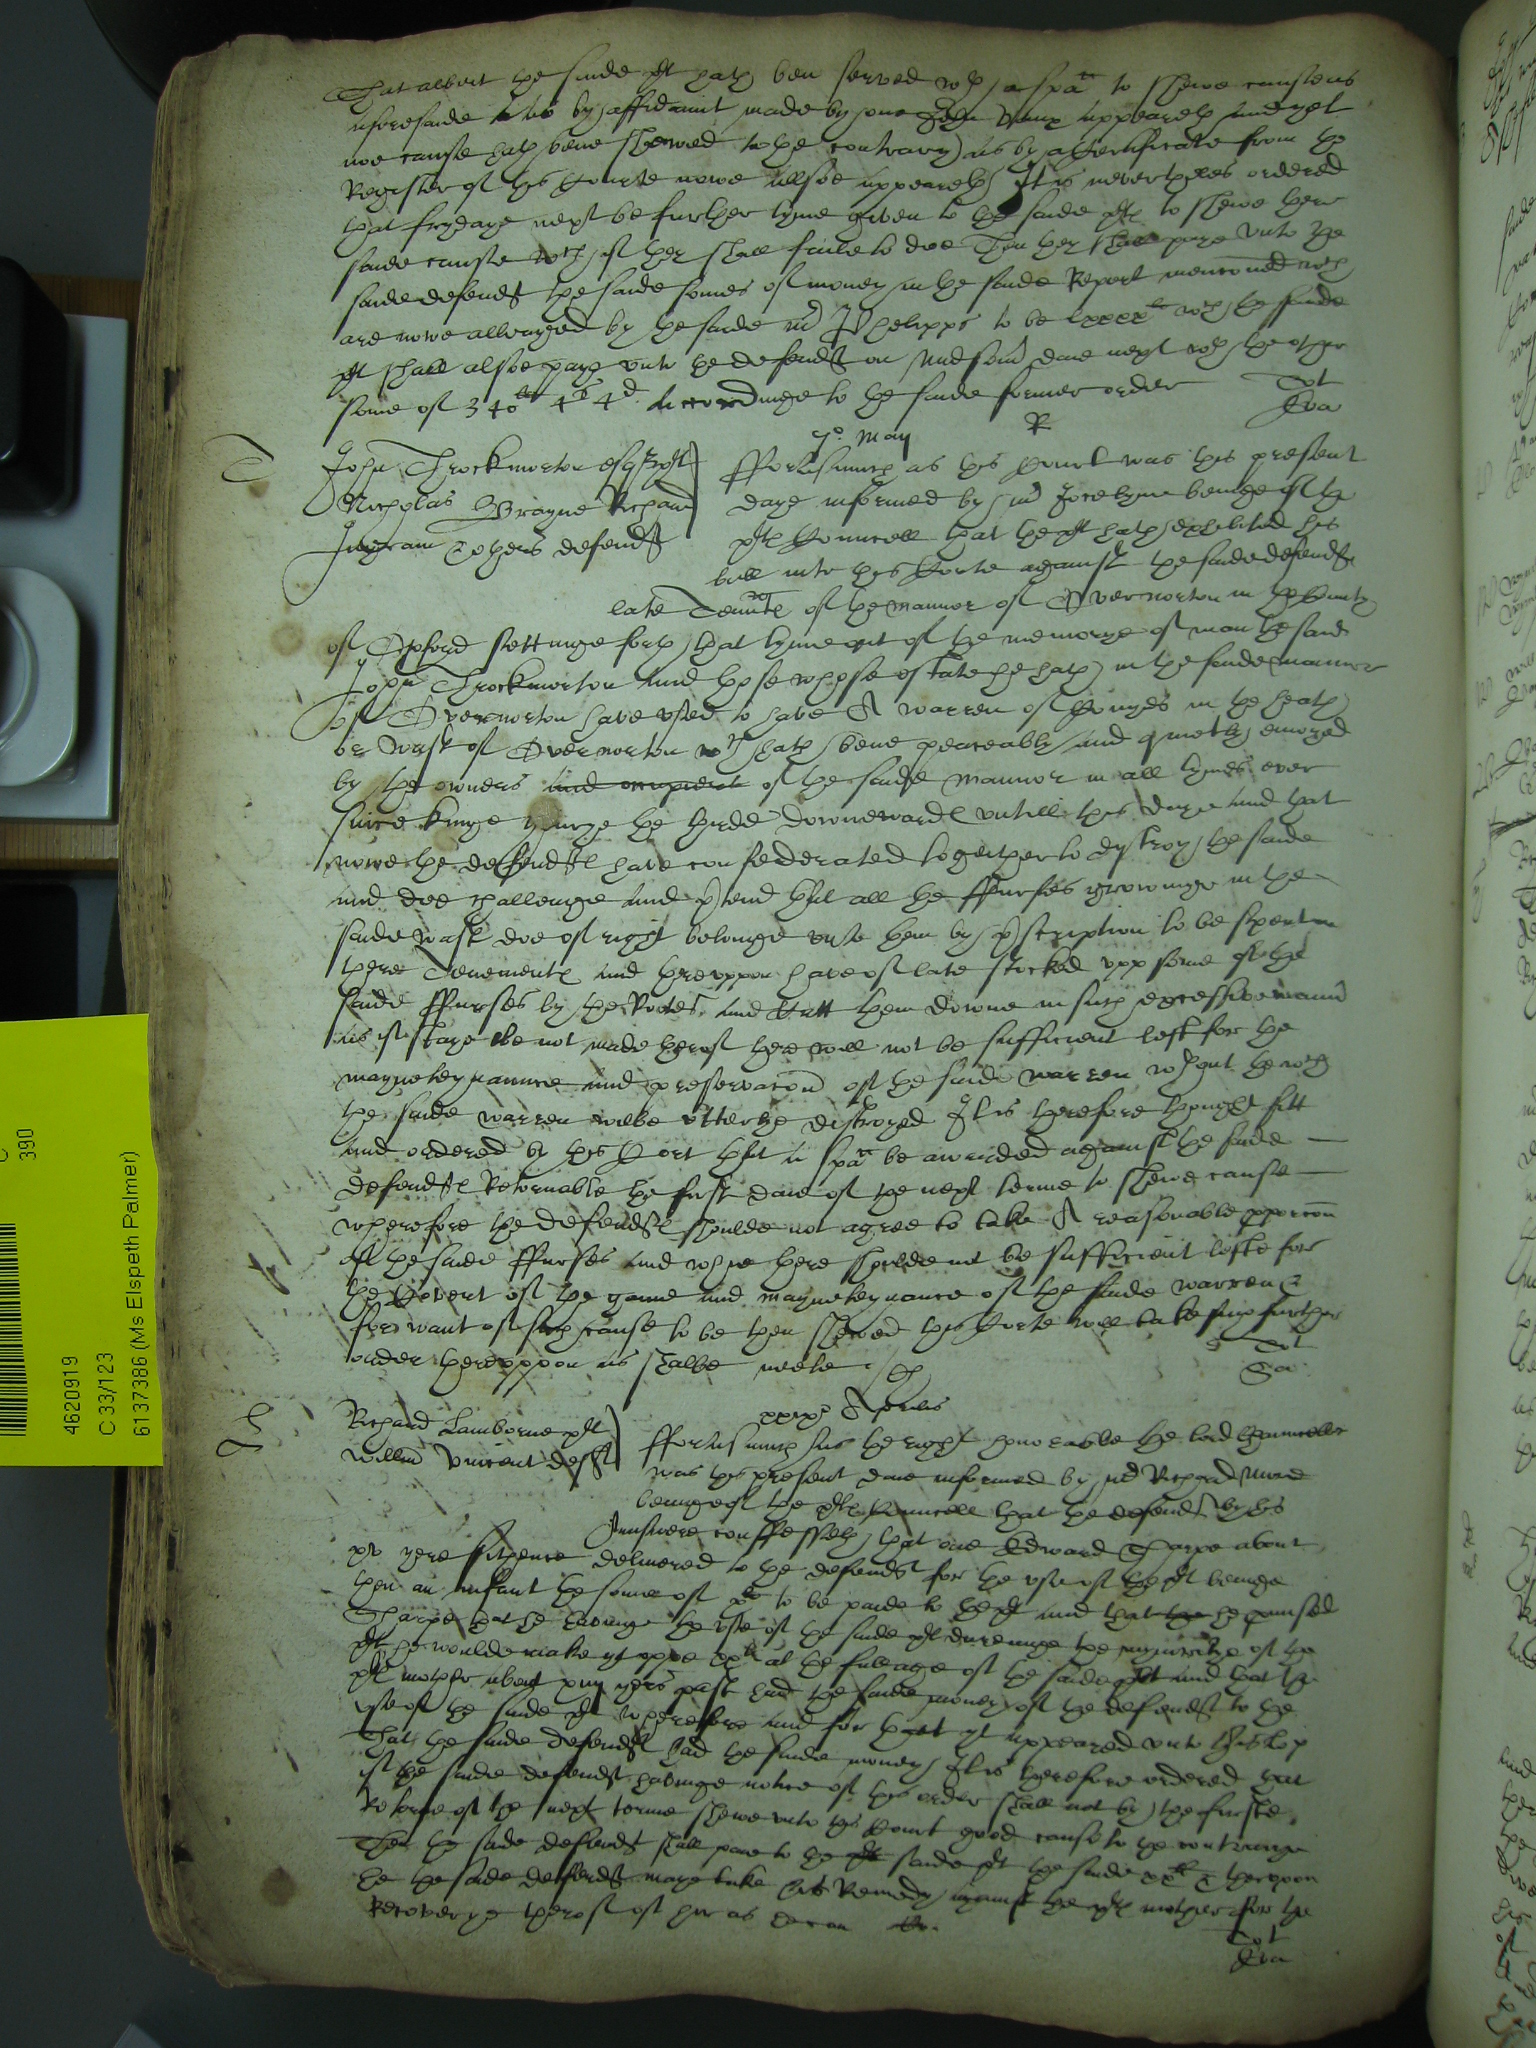 That albeit the saide plt hath ben served wth a spa to shewe cause as
aforesaide as by affidavit made by one John appeareth and yet
noe cause hath bene shewed to the contrary as by a certificate from the
Register of this Courte nowe allsoe appeareth It is neverthelesse ordered
that frydaye next be further tyme given to the saide plt to shewe her
saide cause wch if her shall faile to doe Then her shall paye unto the
saide defendt the saide somes of money in the saide Report mencõned wch
are nowe alleaged by the saide mr Phelipps to be lxxxx li wch the saide
plt shall alsoe paye unto the defendt on Midsom daie next wth the other
some of 340 li 4s 4d accordinge to the saide former order
R
7o May
John Throckmorton esqr plt
Nicholas Brayne Richard
Ingram & others defendts
fforasmuch as this Court was this present
daye informed by mr Jocelyne beinge of the
plts Councell that the plt hath exhibited his
bill into this Corte against the saide defendts
late Tennts of the mannor of Overnorton in the County
of Oxford settinge forth that tyme out of the memorye of man the said
John Throckmorton and those whose estate he hath in the saide mannor
of Overnorton have used to have A warren of Conyes in the heath
or wast of Overnorton wch hath bene peaceably and quietly enioyed
by the owners and occupiers of the saide mannor in all tymes ever
since kinge the third downeward untill this daye and that
nowe the defendts have confederated together to dystroy the saide
and doe challenge and ptend that all the ffurses growinge in the
saide wast doe of right belonge unto them by pscription to be spent in
there Tenements and thereuppon have of late stocked upp some of the
saide ffurses by the Rootes and Cutt them downe in such excessive mann
as if staye be not made therof there will not be sufficient left for the
mayneteynaunce and preservacon of the saide warren wthout the wch
the saide warren wilbe utterlye distroyed It is therefore thought fitt
and ordered by this Cort that a spa be awarded against the saide
defendts Retornable the first daie of the next terme to shewe cause
wherefore the defendts shoulde not agree to take A reasonable pporcon
of the saide ffurses and whie there shoulde not be sufficient lefte for
the Covert of the game and mayneteynance of the saide warren &
for want of such cause to be then shewed this Corte will take such further
order thereuppon as shalbe meete
xxixo Aprilis
Richard Lamborne plt
Willm Vincent deft
fforasmuch as the right honorable the lord Chauncellor
was this present daie informed by mr Richard
beinge of the plts Councell that the defendt by his
Aunswere confesseth that one Edward Tharpe about
yere sithence delivered to the defendt for the use of the plt beinge
then an infant the some of to be paide to the plt and that he promised
Tharpe that he havinge the use of the saide plt duringe the mynoritye of the
plt he woulde make yt uppe xx li at the full age of the saide plt and that the
plts mother about yers past had the saide money of the defendt to the
use of the saide plt Wherefore and for that yt appeared unto his Lop
That the saide defendt had the saide money It is therefore ordered that
if the saide defendt havinge notice of this order shall not by the firste
Retorne of the next terme shewe unto this Court good cause to the contrarye
Then the saide defendt shall paie to the saide plt the saide xx li & thereupon
he the saide defendt maye take his Remedy against the plts mother for the
Recoverye therof of her as he can
4620919
C 33/123
6137386 (Ms Elspeth Palmer)
390